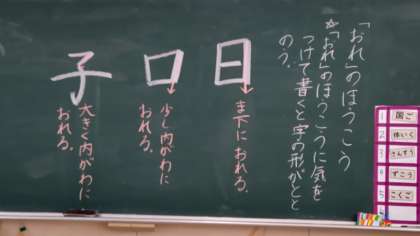 「おれ」のほうこう
☆「おれ」のほうこうに気を
つけて書くと字の形がとと
のう。
日
ま下に おれる。
口
少し内がわに
おれる。
子
大きく内がわに
おれる。
1 国ご
2 体いく
3 さんすう
4 ずこう
5 こくご